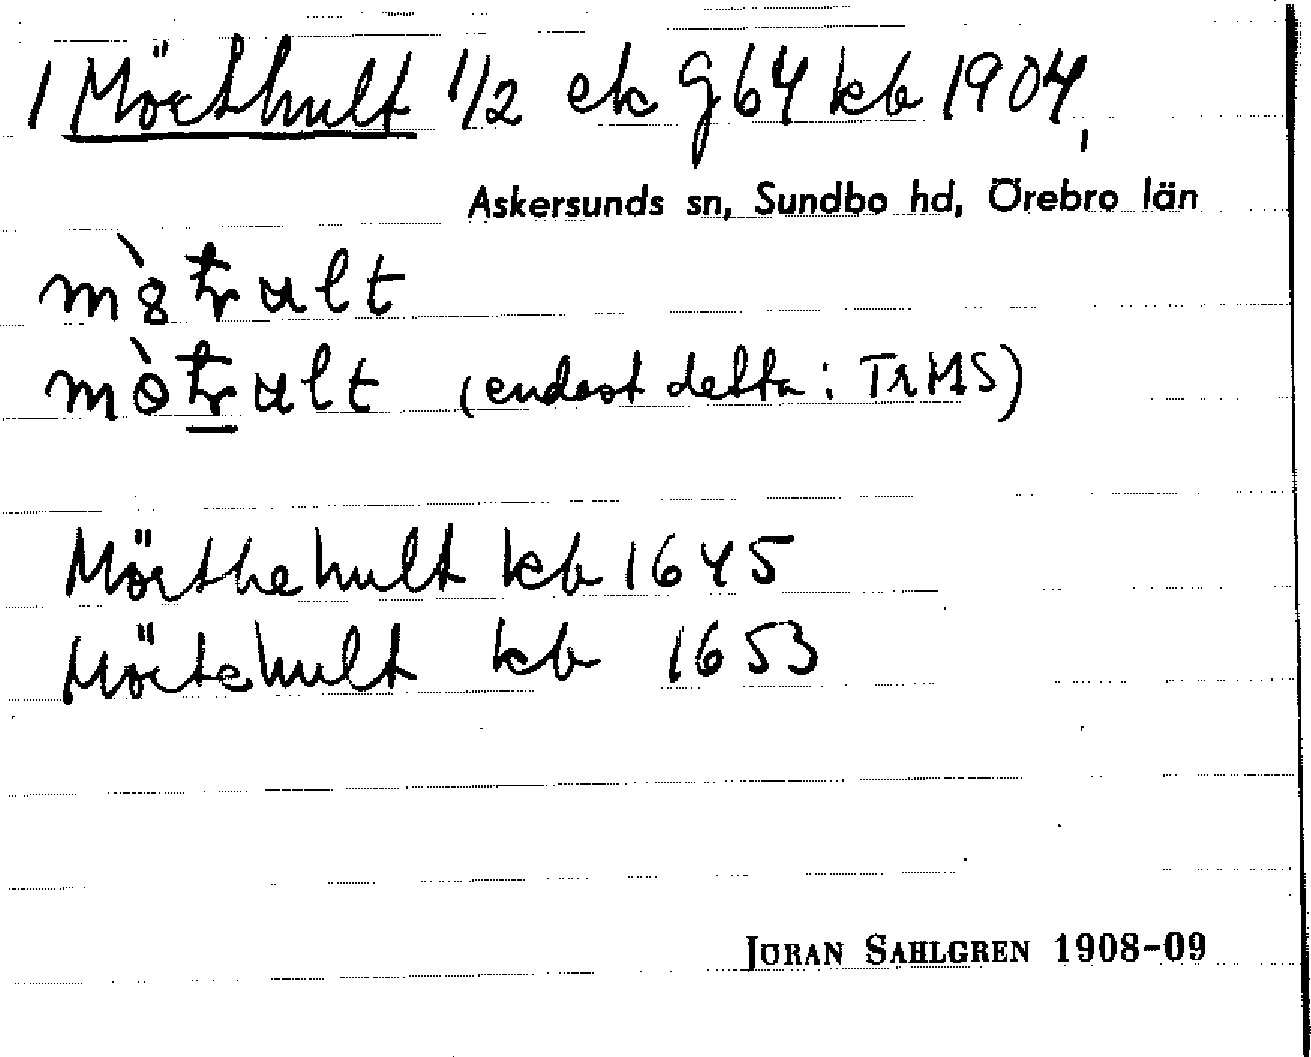 1 Mörthult 1/2 ek g 64 kb 1904,
Askersunds sn, Sundbo hd, Örebro län
(endast detta: TrMS)
Mörthehult kb 1645
Mörtehult kb 1653
JÖRAN SAHLGREN 1908-09